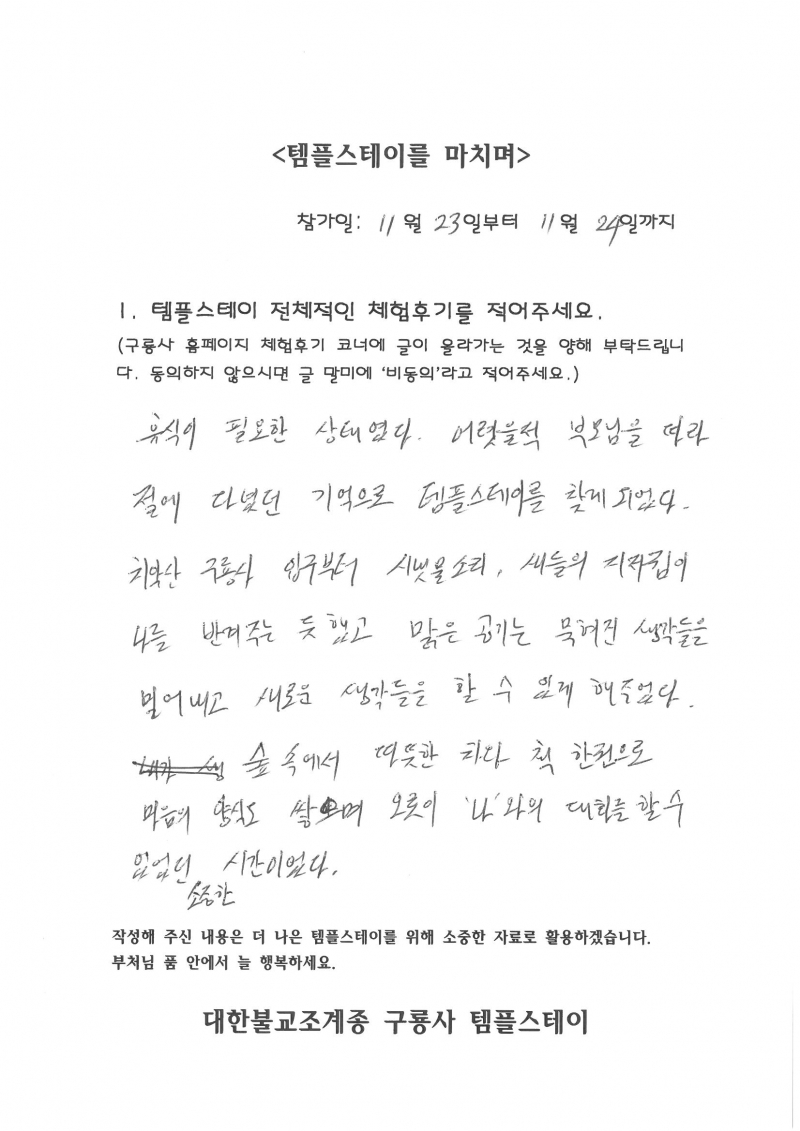 <템플스테이를 마치며>
참가일: 11월 23일부터 11월 24일까지
1. 템플스테이 전체적인 체험후기를 적어주세요.
(구룡사 홈페이지 체험후기 코너에 글이 올라가는 것을 양해 부탁드립니
다. 동의하지 않으시면 글 말미에 '비동의'라고 적어주세요.)
휴식이 필요한 상태였다. 어렸을적 부모님을 따라
절에 다녔던 기억으로 템플스테이를 찾게되었다.
치악산 구룡사 입구부터 시냇물소리, 새들의 지저귐이
나를 반겨주는 듯 했고 맑은 공기는 묵혀진 생각들을
밀어내고 새로운 생각들을 할 수 있게 해주었다.
숲 속에서 따뜻한 차와 책 한권으로
마음의 양식도 쌓으며 오롯이 '나'와의 대화를 할 수
있었던 시간이었다.
소중한
작성해 주신 내용은 더 나은 템플스테이를 위해 소중한 자료로 활용하겠습니다.
부처님 품 안에서 늘 행복하세요.
대한불교조계종 구룡사 템플스테이